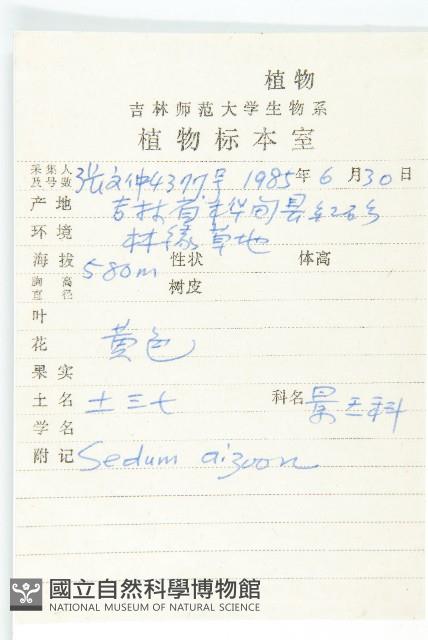 植物
吉林师范大学生物系
植物标本室
采集人及号数 张文仲4377号 1985年6月30日
产地 吉林省桦甸县红石乡
环境 林缘草地
海拔 580m 性状 体高
胸高直径 树皮
叶
花 黄色
果实
土名 土三七 科名 景天科
学名
附记 Sedum aizoon
國立自然科學博物館
NATIONAL MUSEUM OF NATURAL SCIENCE